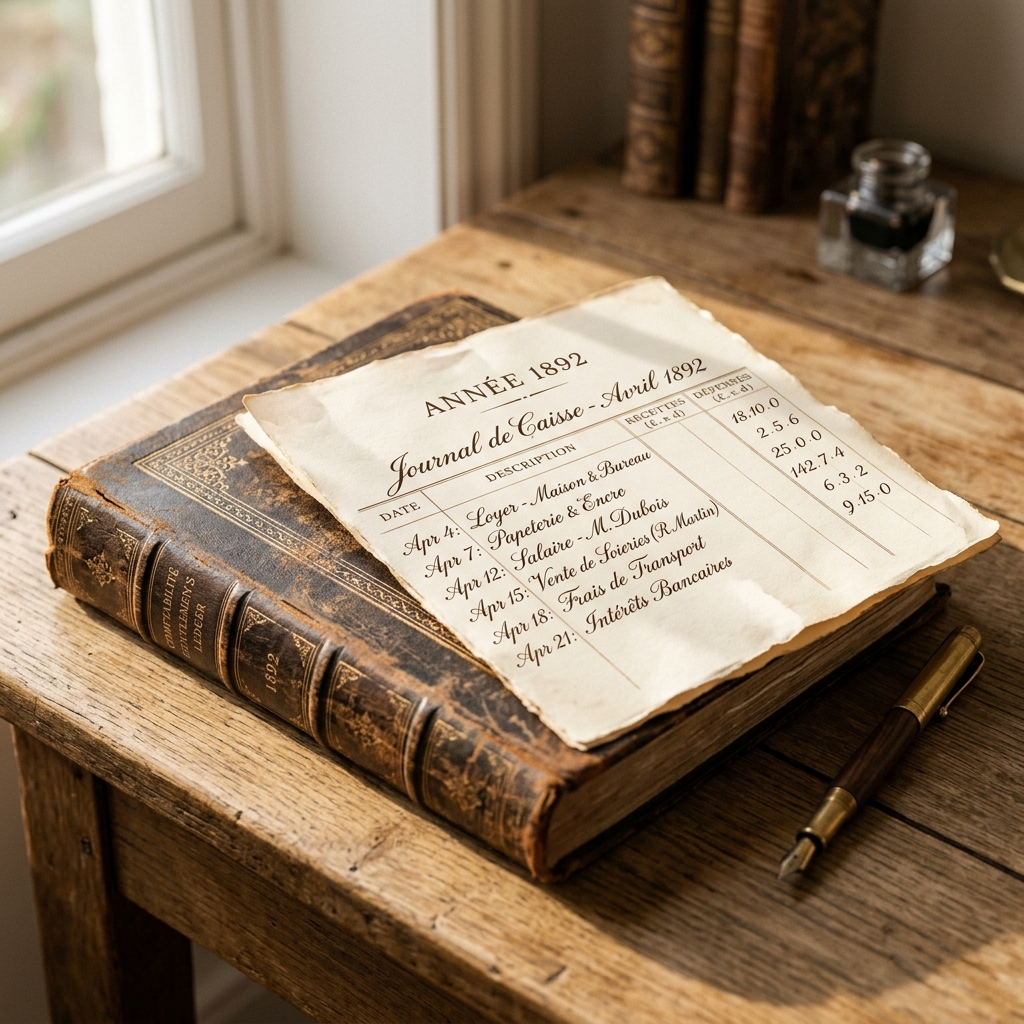 ANNÉE 1892
Journal de Caisse - Avril 1892
DATE DESCRIPTION RECETTES (£. s d) DÉPENSES (£. s d)
Apr 4: Loyer - Maison & Bureau 18.10.0
Apr 7: Papeterie & Encre 2.5.6
Apr 12: Salaire - M. Dubois 25.0.0
Apr 15: Vente de Soieries (R. Martin) 142.7.4
Apr 18: Frais de Transport 6.3.2
Apr 21: Intérêts Bancaires 9.15.0
COMPTABILITE
GENTLEMEN'S
LEDGER
1892